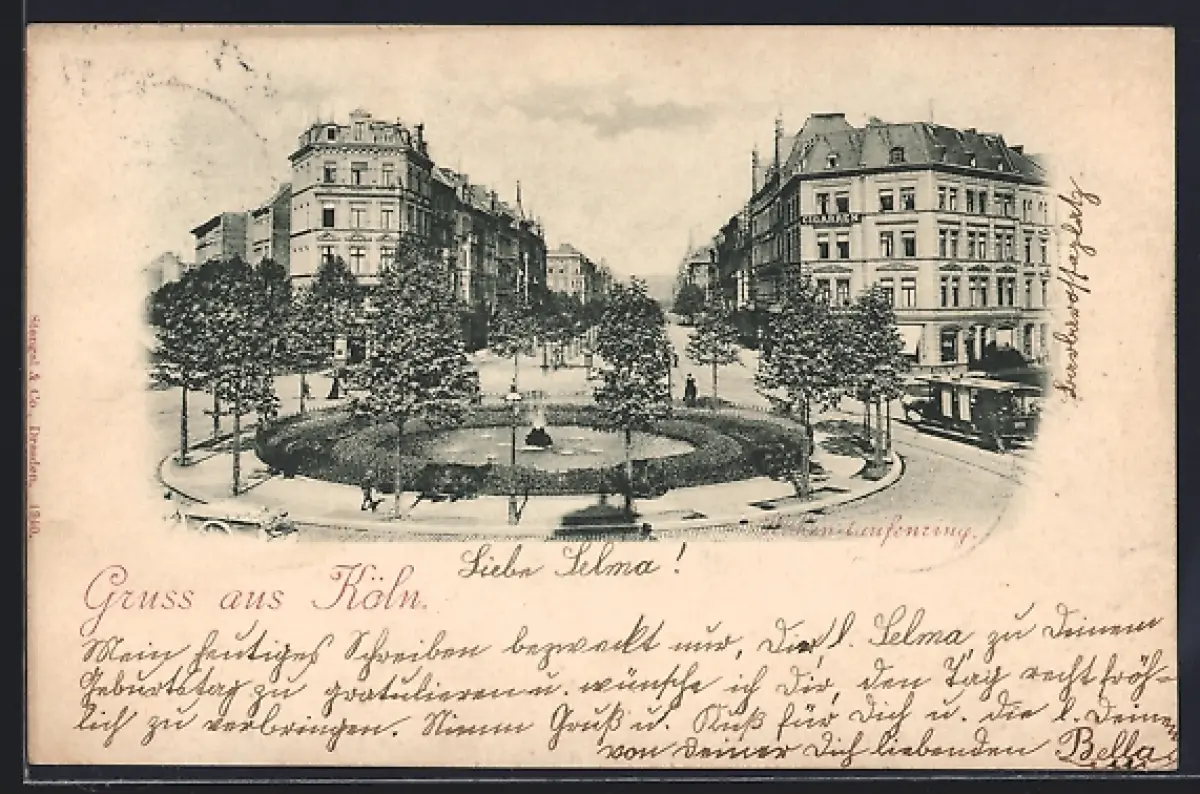 CIGARREN
Barbarossaplatz
Hohenstaufenring.
Stengel & Co., Dresden, 1210.
Liebe Selma!
Gruss aus Köln.
Mein heutiges Schreiben bezweckt nur, Dir, l. Selma, zu Deinem
Geburtstag zu gratulieren u. wünsche ich Dir, den Tag recht fröh-
lich zu verbringen. Nimm Gruß u. Kuß für Dich u. die l. Deinen
von Deiner Dich liebenden Bella